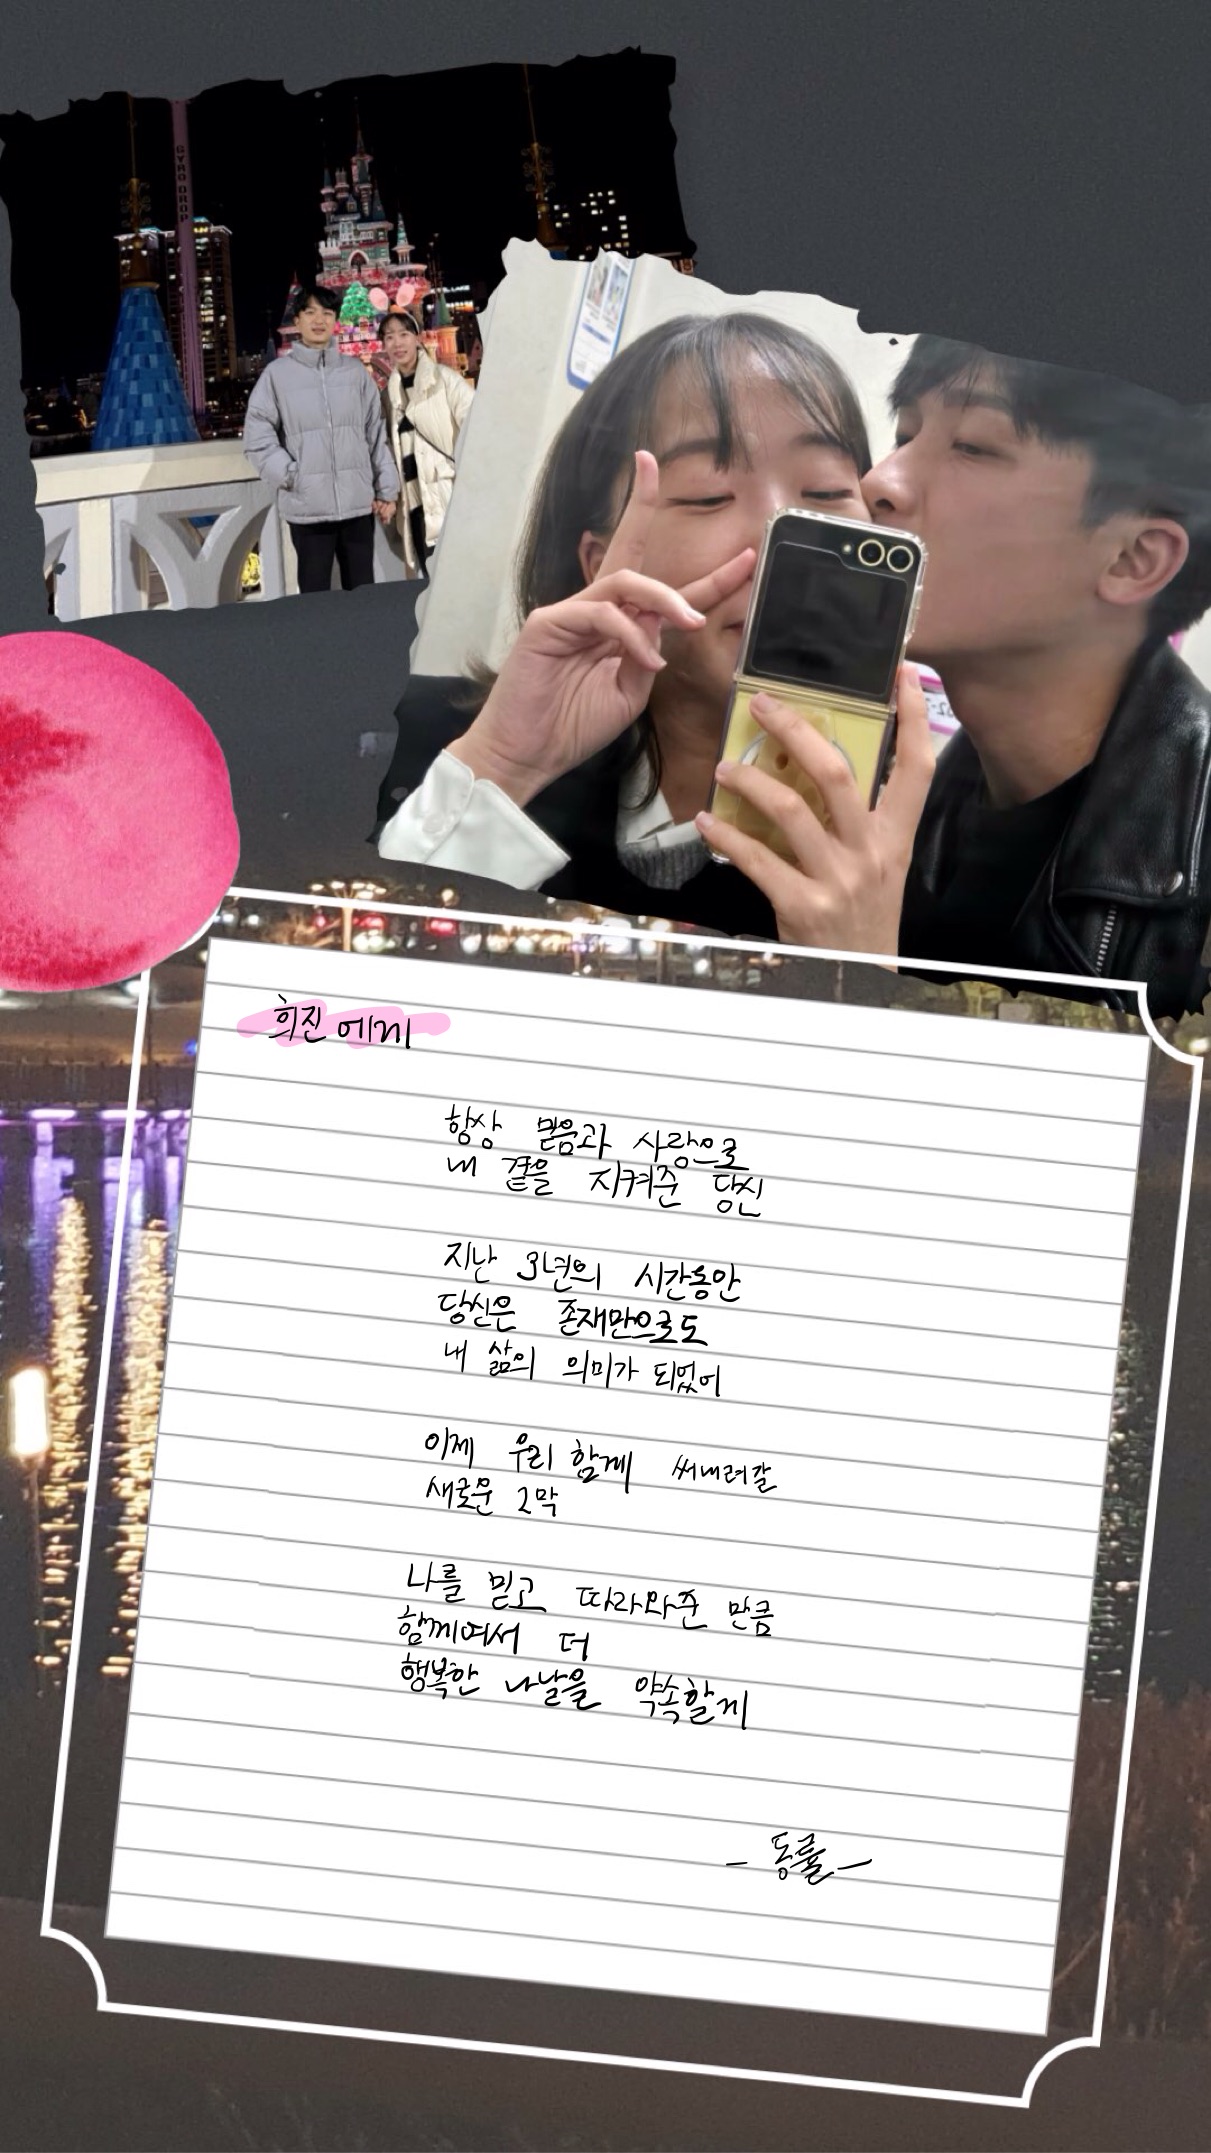 GYRO DROP
희진에게
항상 믿음과 사랑으로
내 곁을 지켜준 당신
지난 3년의 시간동안
당신은 존재만으로도
내 삶의 의미가 되었어
이제 우리 함께 써내려갈
새로운 2막
나를 믿고 따라와준 만큼
함께여서 더
행복한 나날을 약속할게
- 동률 -